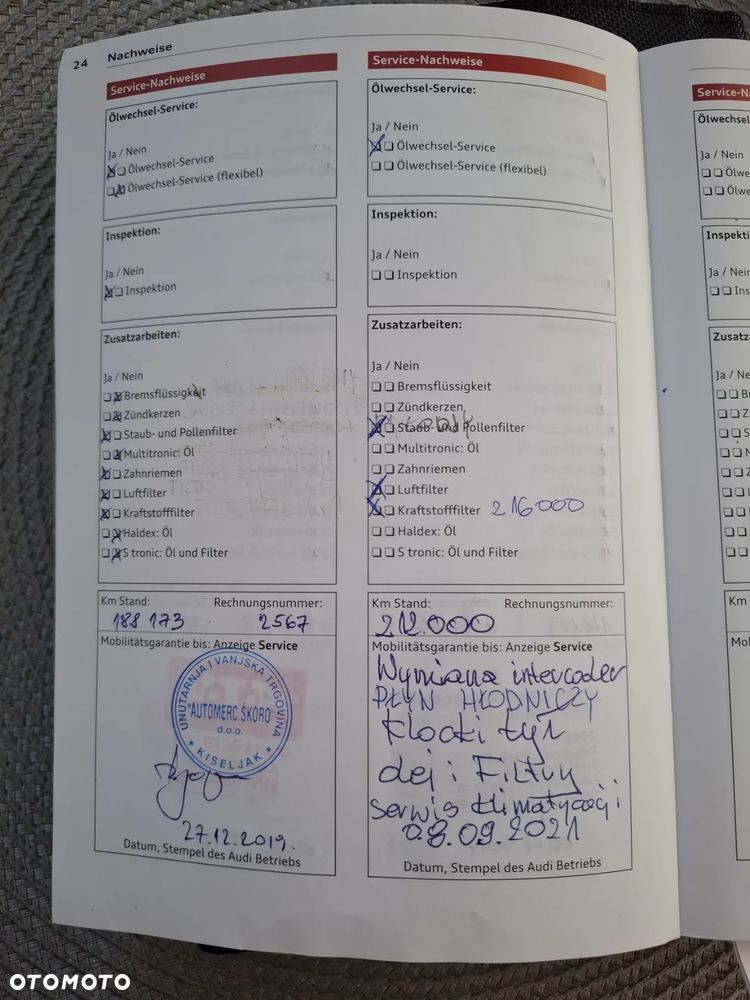 24
Nachweise
Service-Nachweise
Ölwechsel-Service:
Ja / Nein
Ölwechsel-Service
Ölwechsel-Service (flexibel)
Inspektion:
Ja / Nein
Inspektion
Zusatzarbeiten:
Ja / Nein
Bremsflüssigkeit
Zündkerzen
Staub- und Pollenfilter
Multitronic: Öl
Zahnriemen
Luftfilter
Kraftstofffilter
Haldex: Öl
S tronic: Öl und Filter
Km Stand: Rechnungsnummer:
188 173 2567
Mobilitätsgarantie bis: Anzeige Service
UNUTARNJA I VANJSKA TRGOVINA
"AUTOMERC ŠKORO"
d.o.o.
* KISELJAK *
27.12.2019.
Datum, Stempel des Audi Betriebs
Service-Nachweise
Ölwechsel-Service:
Ja / Nein
Ölwechsel-Service
Ölwechsel-Service (flexibel)
Inspektion:
Ja / Nein
Inspektion
Zusatzarbeiten:
Ja / Nein
Bremsflüssigkeit
Zündkerzen
Staub- und Pollenfilter
Multitronic: Öl
Zahnriemen
Luftfilter
Kraftstofffilter 216000
Haldex: Öl
S tronic: Öl und Filter
Km Stand: Rechnungsnummer:
212.000
Mobilitätsgarantie bis: Anzeige Service
Wymiana intercooler
PŁYN HŁODNICZY
klocki tył
olej i Filtry
Serwis klimatyzacji
08.09.2021
Datum, Stempel des Audi Betriebs
Service-N
Ölwechsel
Ja / Nein
Ölwe
Ölwe
Inspekti
Ja / Nein
Ins
Zusatz
Ja / Ne
Km
Mobi
OTOMOTO